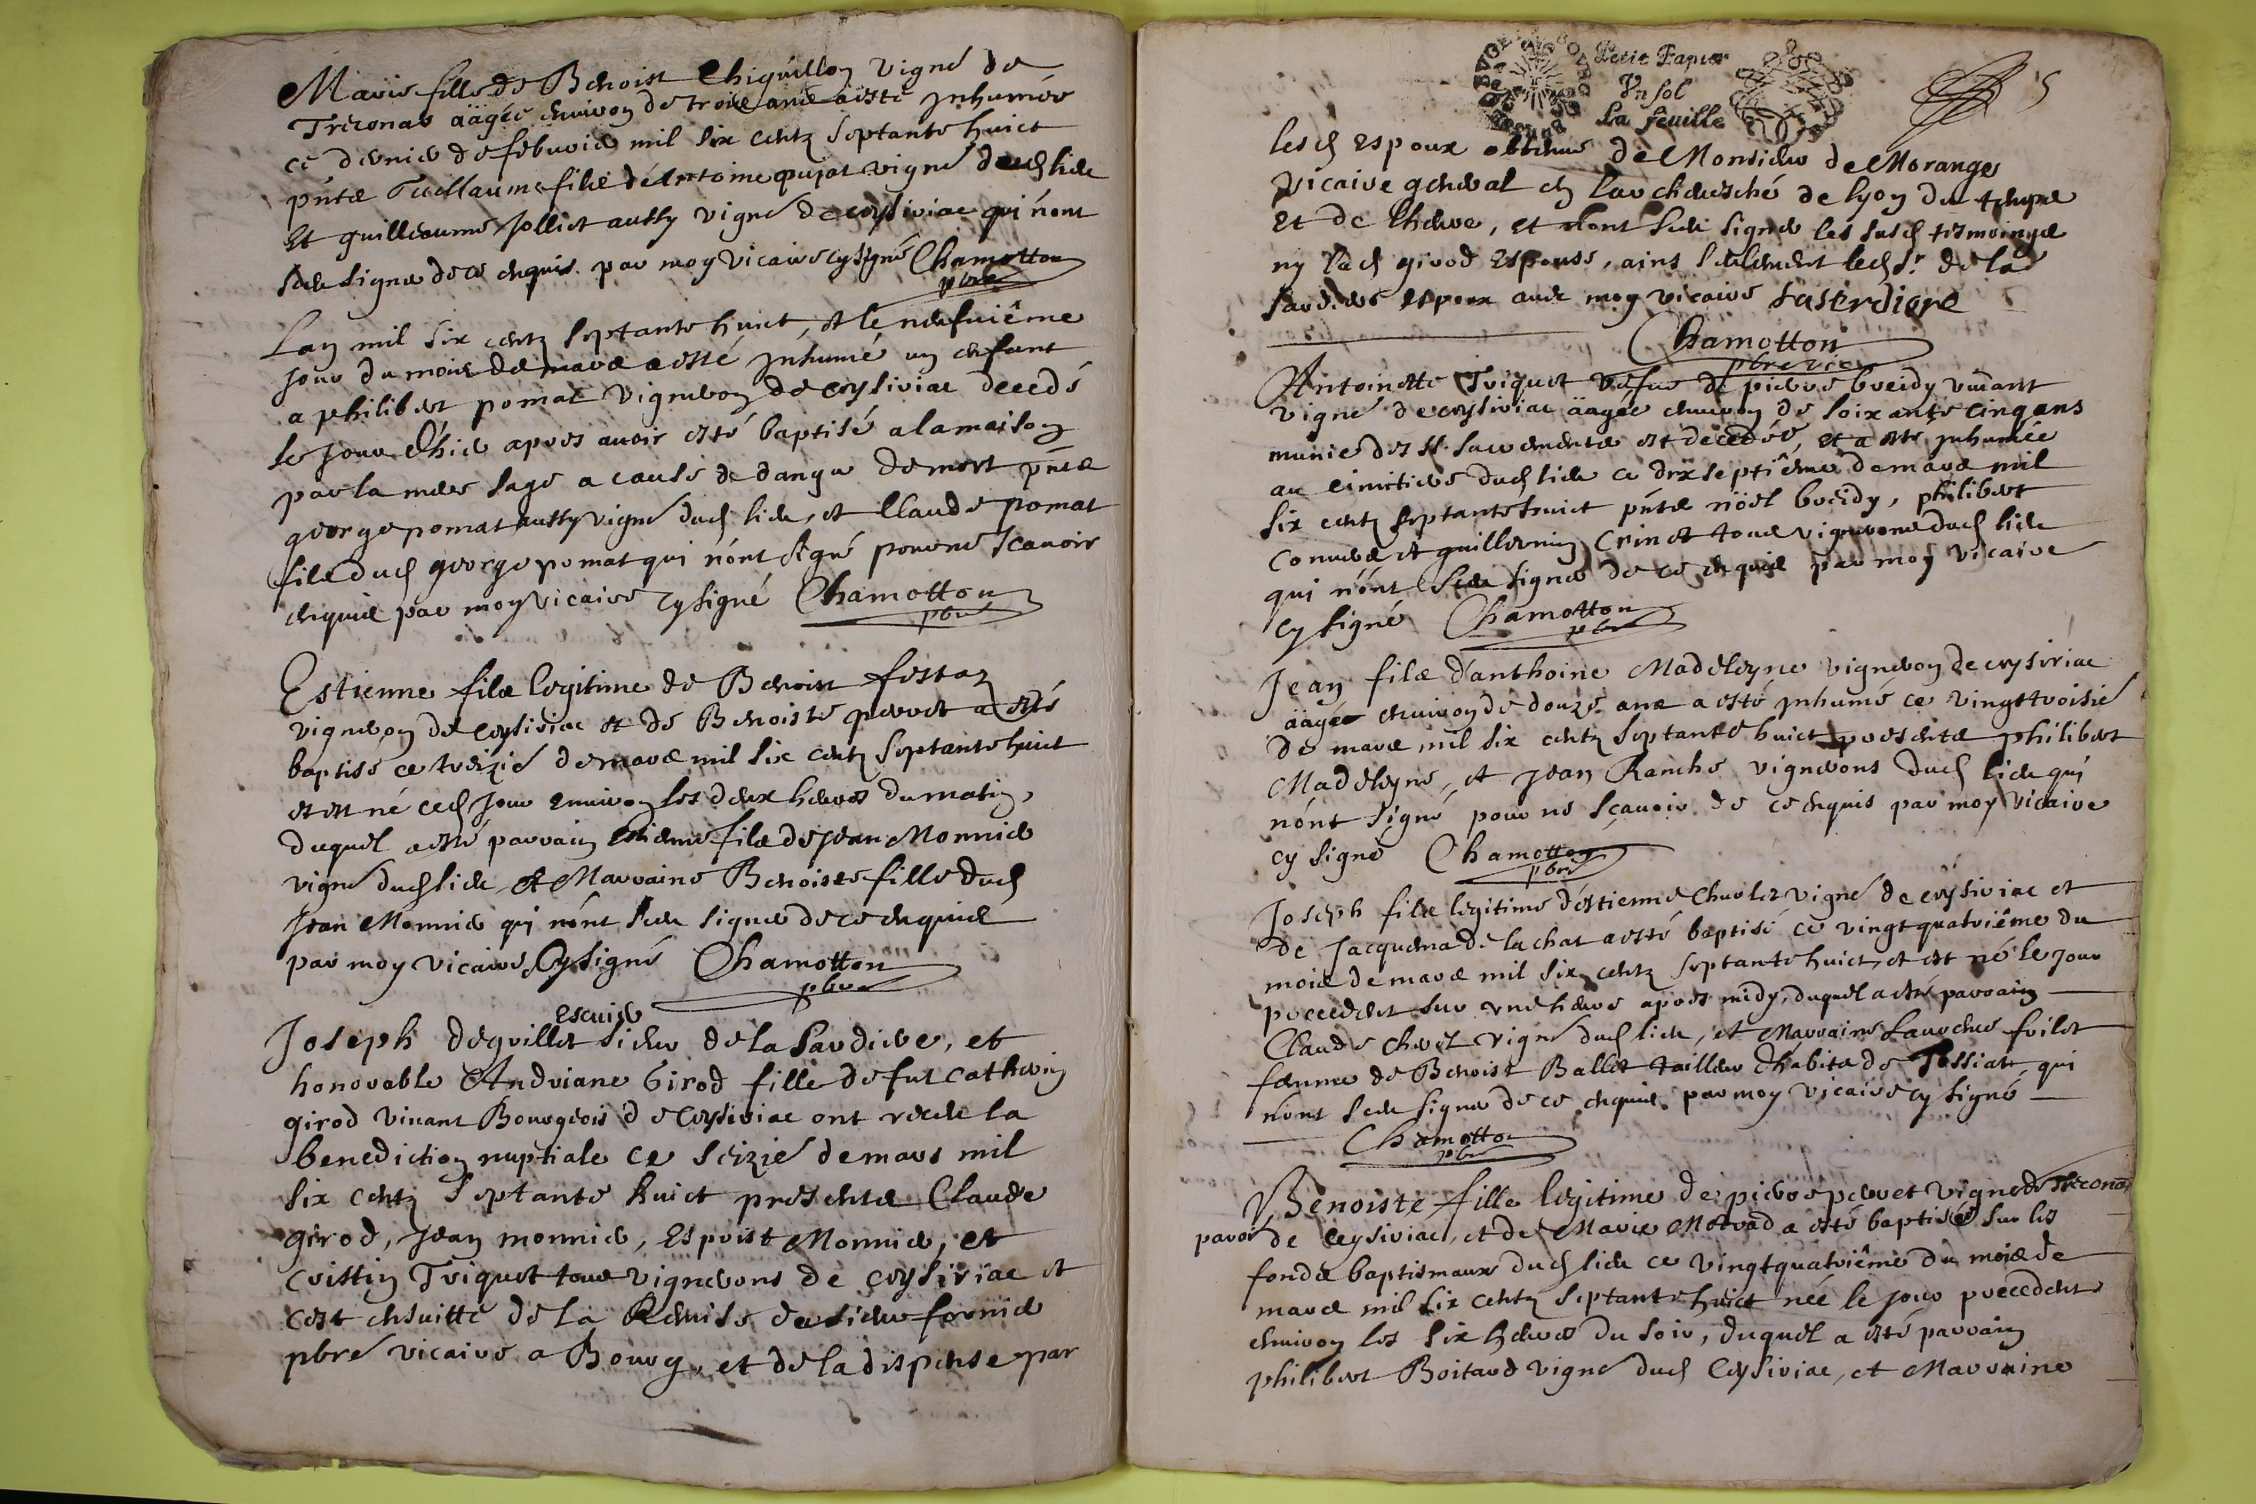 Marie fille de Benoist Chiquillon vigné de
Treconas äagée enuiron de trois ans a esté Inhumée
ce dernier de febvrier mil six centz septante huict
pnts Guillaume fils de Antoine pujat vigné dud lieu
et guilleaume Jolliet aussy vigné de ceysiriac qui nont
sceu signer de ce enquis par moy vicaire cy signé Chamotton
pbre
Lan mil six centz septante huict, et le neufuiême
jour du mois de mars a esté Inhumé un enfant
a philibert pomat vigneron de ceysiriac decedé
le jour d'hier apres auoir esté baptisé a la maison
par la mere sage a cause de danger de mort pnts
george pomat aussy vigné dud lieu, et Claude pomat
fils dud george pomat qui nont signé pour ne scauoir
enquis par moy vicaire cy signé Chamotton
pbre
Estienne fils legitime de Benoist festaz
vigneron de ceysiriac et de Benoiste perret a esté
baptisé ce treizié de mars mil six centz septante huict
et est né ced jour enuiron les deux heures du matin,
duquel a esté parrain Estienne fils de Jean Monnier
vigné dud lieu et Marraine Benoiste fille dud
Jean Monnier qui nont sceu signer de ce enquis
par moy vicaire cy signé Chamotton
pbre
escuier
Joseph deguillet sieur de la sardiere, et
honorable Andriane Girod fille de fut catherin
girod viuant Bourgeois de Ceysiriac ont receu la
benediction nuptiale ce seizié de mars mil
six centz septante huict presents Claude
girod, Jean monnier, Esprit Monnier, et
cristin Triquet tous vignerons de ceysiriac et
cest ensuitte de la Remise du sieur fornier
pbré vicaire a Bourg, et de la dispense par
Petit Papier
Vn sol
La feuille
5
lesd espoux obtenue de Monsieur de Morange
vicaire general en larcheuesché de lyon du temps
et de lheure, et nont sceu signer les susd tesmoings
ny lad girod espouse, ains seulement led sr de la
sardiere espoux auec moy vicaire Lasardiere
Chamotton
pbre vic
Antoinette Triquet vefue de pierre breidy viuant
vigné de ceysiriac äagée enuiron de soixante cinq ans
munie des ss sacrements est decedée, et a esté inhumée
au cimetiere dud lieu ce dix septiême de mars mil
six centz septante huict pnts nöel breidy, philibert
conuers et guillermin Crin et tous vignerons dud lieu
qui nont sceu signer de ce enquis par moy vicaire
cy signé Chamotton
pbre
Jean fils d'anthoine Madeleyne vigneron de ceysiriac
äagée enuiron de douze ans a esté inhumé ce vingt troisié
de mars mil six centz septante huict presents philibert
Madeleyne, et Jean Ranche vignerons dud lieu qui
nont signé pour ne scauoir de ce enquis par moy vicaire
cy signé Chamotton
pbre
Joseph fils legitime d'estienne Charlet vigné de ceysiriac et
de Jacquema de la chat a esté baptisé ce vingt quatriême du
mois de mars mil six centz septante huict, et est né le jour
precedent sur une heure apres midy, duquel a esté parrain
Claude vigné dud lieu, et Marraine Laurence
femme de Benoist Ballet tailleur d'habits de Tossiat, qui
nont sceu signer de ce enquis par moy vicaire cy signé
Chamotton
pbre
Benoiste fille legitime de pierre perret vigné de Trecona
parroi de ceysiriac, et de Marie Morrad a esté baptisée sur les
fonds baptismaux dud lieu ce vingt quatriême du mois de
mars mil six centz septante huict née le jour precedent
enuiron les six heures du soir, duquel a esté parrain
philibert Boitard vigné dud Ceysiriac, et Marraine